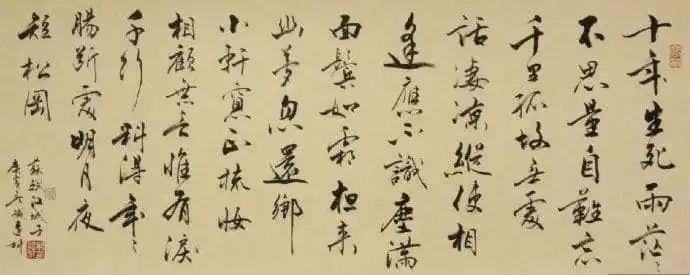 十年生死兩茫〻
不思量自難忘
千里孤坟无處
話凄凉縱使相
逢應不識塵滿
面鬢如霜夜来
幽夢忽還鄉
小軒窗正梳妝
相顧无言惟有淚
千行料得年〻
腸斷處明月夜
短松岡
蘇軾江城子